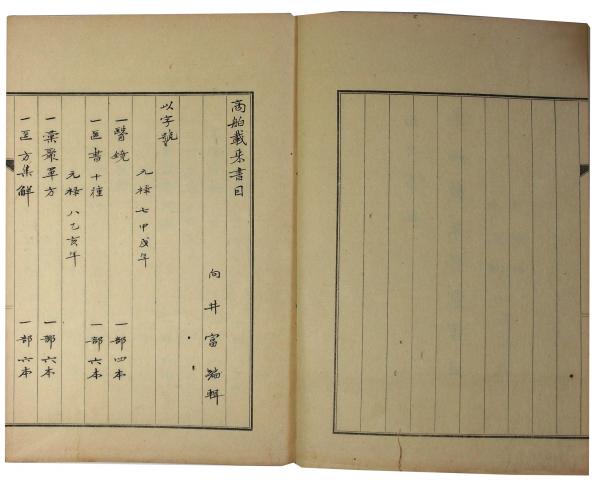 商舶載来書目
向井富編輯
以字號
元禄七甲戌年
一醫鏡 一部四本
一医書十種 一部六本
元禄八乙亥年
一彙聚單方 一部六本
一医方集解 一部六本